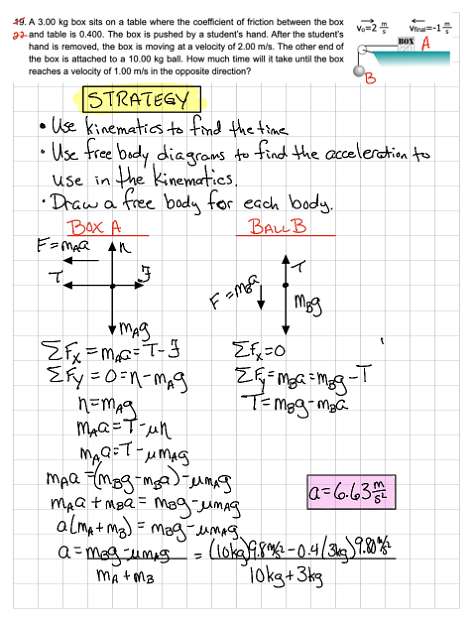 19. A 3.00 kg box sits on a table where the coefficient of friction between the box
22. and table is 0.400. The box is pushed by a student's hand. After the student's
hand is removed, the box is moving at a velocity of 2.00 m/s. The other end of
the box is attached to a 10.00 kg ball. How much time will it take until the box
reaches a velocity of 1.00 m/s in the opposite direction?
v₀=2 m/s
v_final=-1 m/s
BOX A
B
STRATEGY
• Use kinematics to find the time
• Use free body diagrams to find the acceleration to
use in the kinematics.
• Draw a free body for each body.
BOX A
BALL B
F=m_A a
n
T
f
m_A g
T
F=m_B a
m_B g
ΣF_x=m_A a=T-f
ΣF_y=0=n-m_A g
n=m_A g
m_A a=T-μn
m_A a=T-μm_A g
ΣF_x=0
ΣF_y=m_B a=m_B g-T
T=m_B g-m_B a
m_A a=(m_B g-m_B a)-μm_A g
m_A a+m_B a=m_B g-μm_A g
a(m_A+m_B)=m_B g-μm_A g
a=6.63 m/s²
a=(m_B g-μm_A g)/(m_A+m_B)=((10kg)9.8m/s²-0.4(3kg)9.80m/s²)/(10kg+3kg)